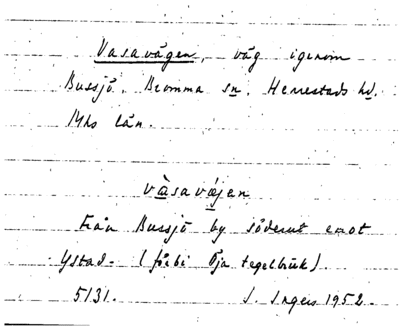 Vasavägen, väg igenom
Bussjö, Bromma sn, Herrestads hd.
Mhs län.
vàsavä́jen
Från Bussjö by söderut emot
Ystad. (förbi Öja tegelbruk).
5131. S. Ingers 1952.